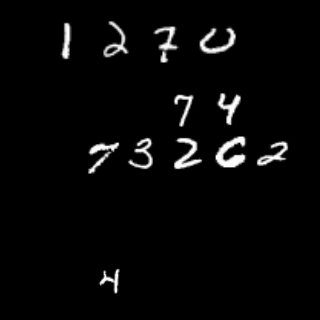 1270
74
73262
4